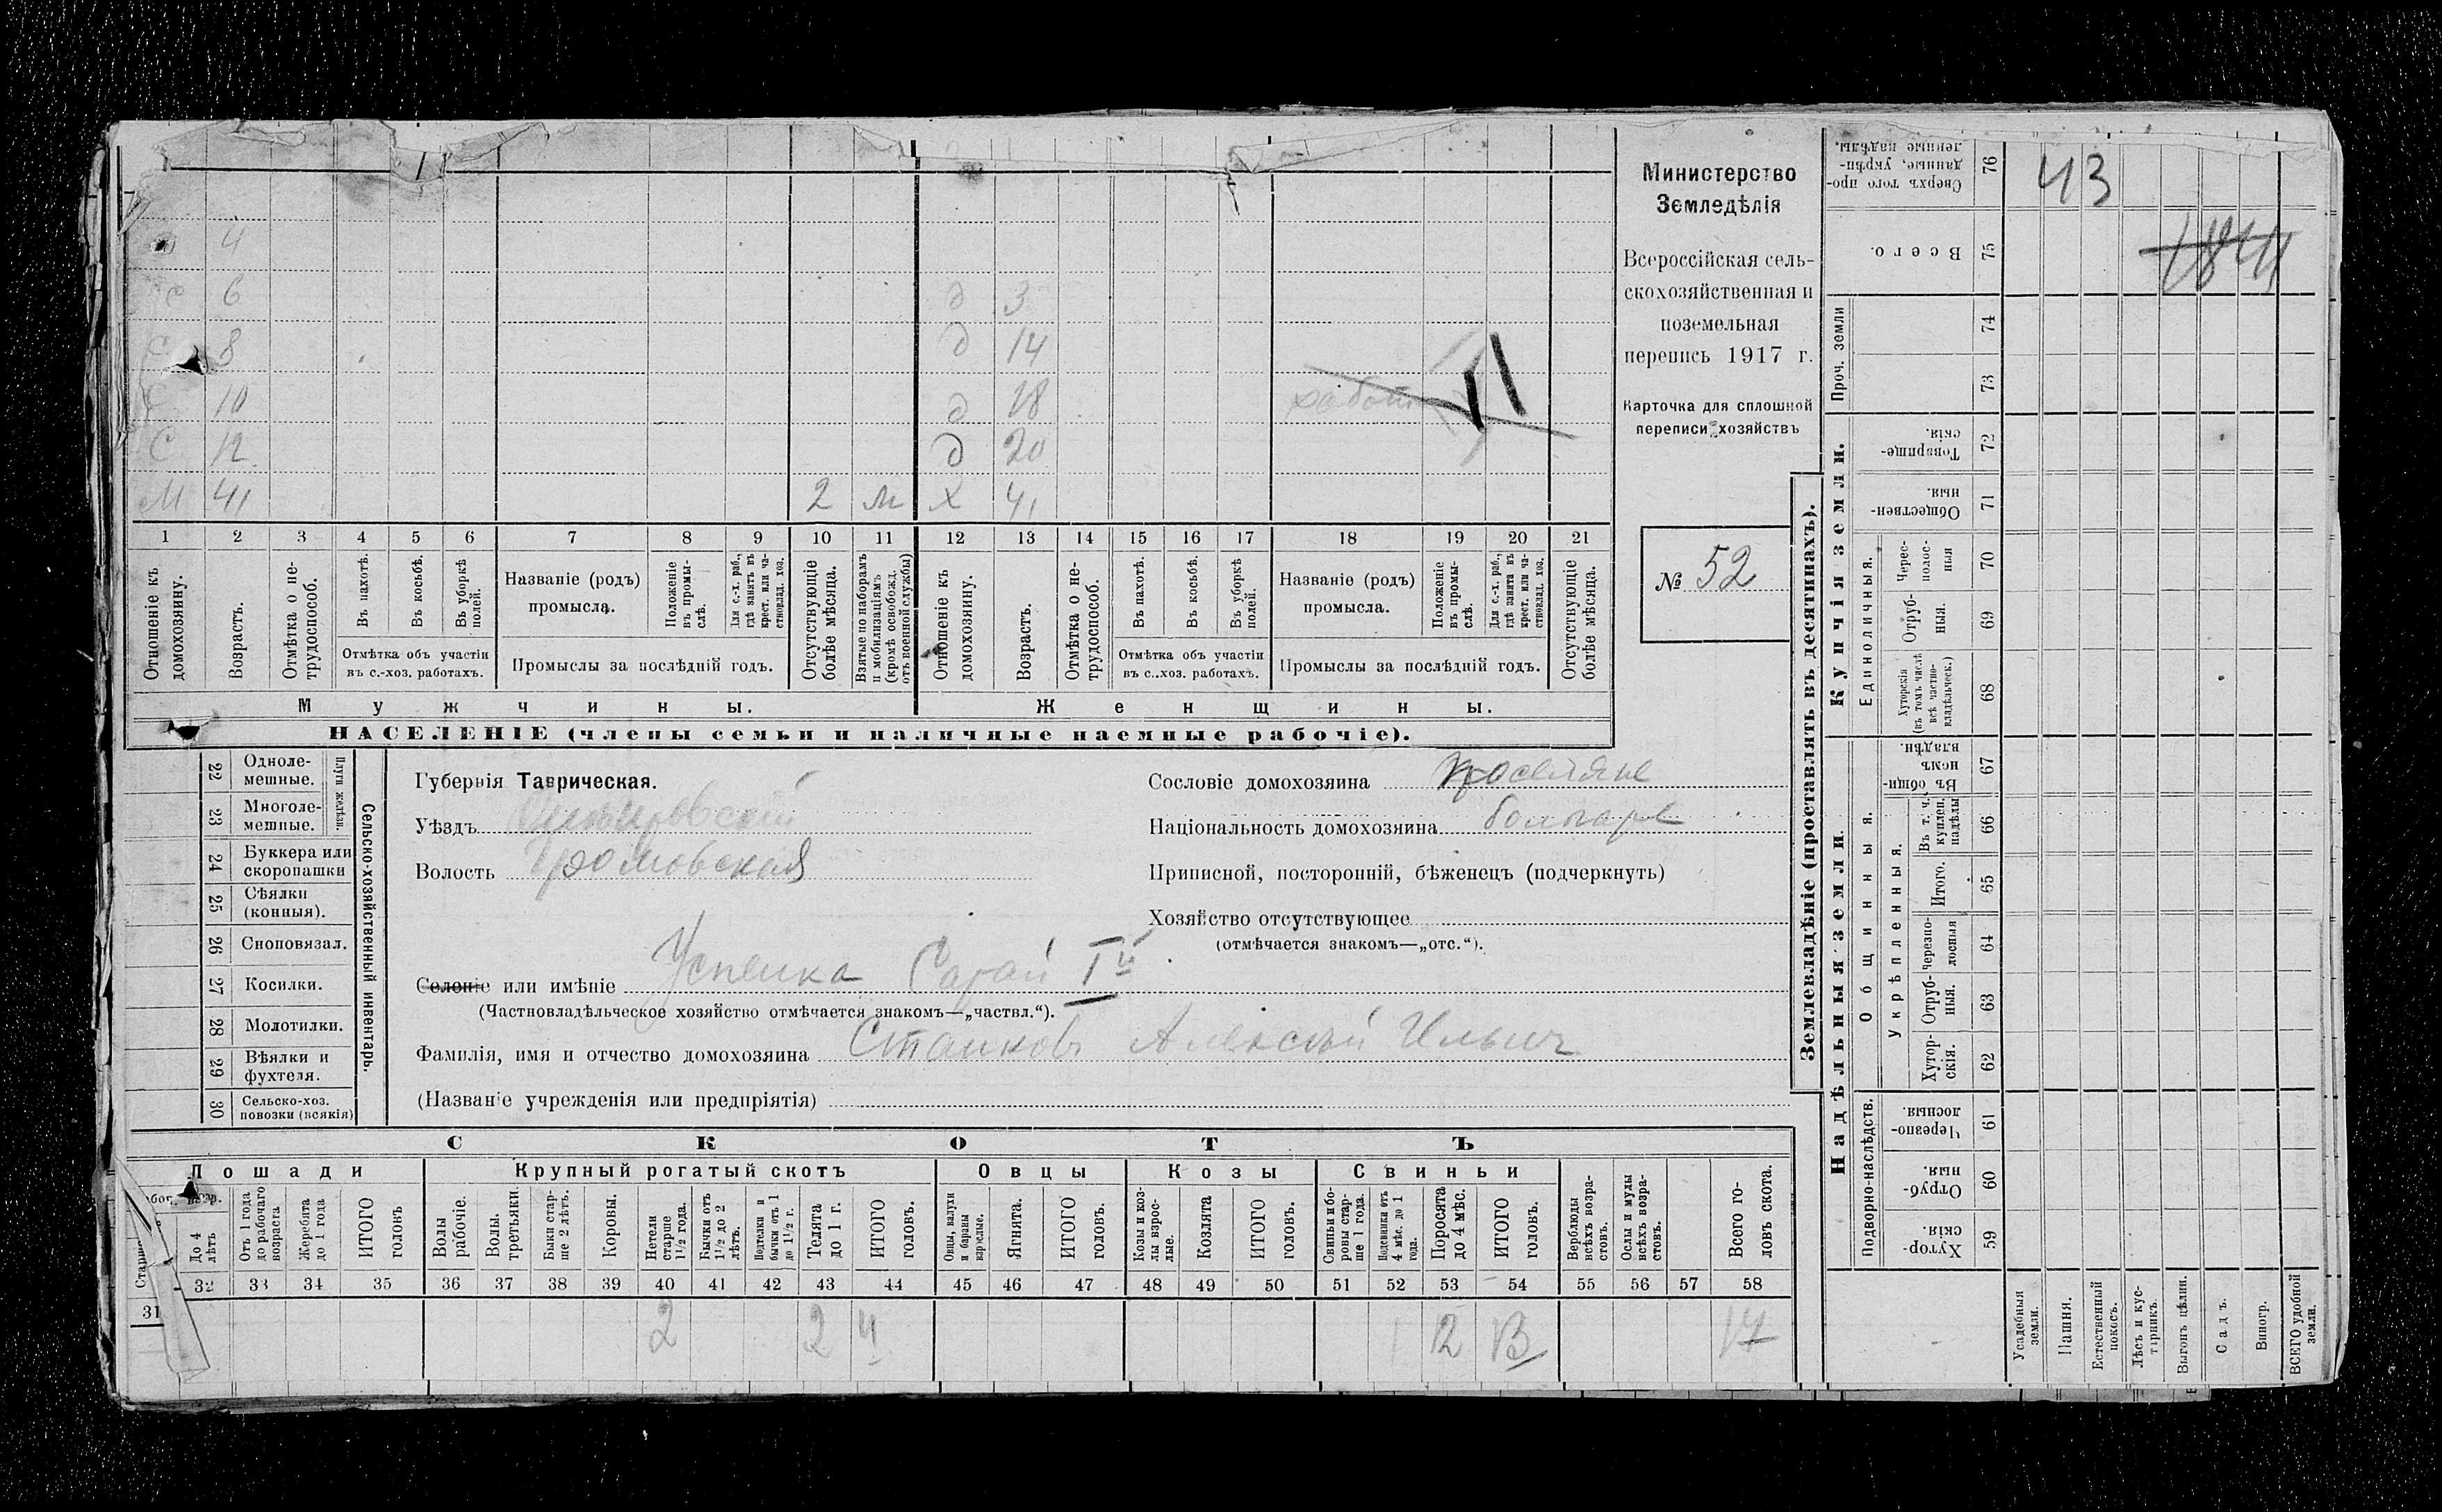 4
с 6 д 3
с 8 д 14
10 д 18
с 12 д 20
М 41 2 м х 41
1 2 3 4 5 6 7 8 9 10 11 12 13 14 15 16 17 18 19 20 21
Отношеніе къ домохозяину.
Возрастъ.
Отмѣтка о не-
трудоспособ.
Въ пахотѣ.
Въ косьбѣ.
Въ уборкѣ
полей.
Отмѣтка объ участіи
въ с.-хоз. работахъ.
Названіе (родъ)
промысла.
Положеніе
въ промы-
слѣ.
Для с.-х. раб.,
гдѣ занятъ въ
крест. или ча-
стновлад. хоз.
Промыслы за послѣдній годъ.
Отсутствующіе
болѣе мѣсяца.
Взятые по наборамъ
и мобилизаціямъ
(кромѣ освобожд.
отъ военной службы)
Отношеніе къ
домохозяину.
Возрастъ.
Отмѣтка о не-
трудоспособ.
Въ пахотѣ.
Въ косьбѣ.
Въ уборкѣ
полей.
Отмѣтка объ участіи
въ с..хоз. работахъ.
Названіе (родъ)
промысла.
Положеніе
въ промы-
слѣ.
Для с.-х. раб.,
гдѣ занята въ
крест. или ча-
стновлад. хоз.
Промыслы за послѣдній годъ.
Отсутствующіе
болѣе мѣсяца.
Мужчины.
Женщины.
НАСЕЛЕНІЕ (члены семьи и наличные наемные рабочіе).
Министерство
Земледѣлія
Всероссійская сель-
скохозяйственная и
поземельная
перепись 1917 г.
Карточка для сплошной
переписи хозяйствъ
№ 52
Плуги желѣзн.
22 Одноле-
мешные.
23 Многоле-
мешные.
24 Буккера или
скоропашки
25 Сѣялки
(конныя).
26 Сноповязал.
27 Косилки.
28 Молотилки.
29 Вѣялки и
фухтеля.
30 Сельско-хоз.
повозки (всякія)
Сельско-хозяйственный инвентарь.
Губернія Таврическая.
Уѣздъ
Волость Громовская
Селеніе или имѣніе Успенка Сарай I й
(Частновладѣльческое хозяйство отмѣчается знакомъ—„частвл.“).
Фамилія, имя и отчество домохозяина Станковъ Алексѣй Ильич
(Названіе учрежденія или предпріятія)
Сословіе домохозяина поселяне
Національность домохозяина болгаре
Приписной, посторонній, бѣженецъ (подчеркнуть)
Хозяйство отсутствующее
(отмѣчается знакомъ—„отс.“).
СКОТЪ
Лошади
До 4
лѣтъ
Отъ 1 года
до рабочаго
возраста
Жеребята
до 1 года
ИТОГО
головъ
Крупный рогатый скотъ
Волы
рабочіе.
Волы.
третьяки.
Быки стар-
ше 2 лѣтъ.
Коровы.
Нетели
старше
1½ года.
Бычки отъ
1½ до 2
лѣтъ.
Подтелки и
бычки отъ 1
до 1½ г.
Телята
до 1 г.
ИТОГО
головъ.
Овцы
Овцы, валухи
и бараны
взрослые.
Ягнята.
ИТОГО
головъ.
Козы
Козы и коз-
лы взрос-
лые.
Козлята
ИТОГО
головъ.
Свиньи
Свиньи и бо-
ровы стар-
ше 1 года.
Подсвинки отъ
4 мѣс. до 1
года.
Поросята
до 4 мѣс.
ИТОГО
головъ.
Верблюды
всѣхъ возра-
стовъ.
Ослы и мулы
всѣхъ возра-
стовъ.
Всего го-
ловъ скота.
31 32 33 34 35 36 37 38 39 40 41 42 43 44 45 46 47 48 49 50 51 52 53 54 55 56 57 58
2 2 4 1 12 13 17
Землевладѣніе (проставлять въ десятинахъ).
Надѣльныя земли
Купчія земли.
Проч. земли
Подворно-наслѣдств.
Общинныя.
Укрѣпленныя.
Единоличныя.
Сверхъ того про-
данные, укрѣп-
ленные надѣлы. 76
Всего. 75
74
73
Товарище-
скія. 72
Обществен-
ныя. 71
Черес-
полос-
ныя 70
Отруб-
ныя. 69
Хуторскія
(въ томъ числѣ
всѣ частно-
владѣльческ.) 68
Въ общи-
номъ
владѣн. 67
Въ т. ч.
куплен.
надѣлы 66
Итого. 65
Черезпо-
лосныя 64
Отруб-
ныя. 63
Хутор-
скія. 62
Черезпо-
лосныя. 61
Отруб-
ныя. 60
Хутор-
скія. 59
43
Усадебныя
земли.
Пашня.
Естественный
покосъ.
Лѣсъ и кус-
тарникъ.
Выгонъ цѣлин.
Садъ.
Виногр.
ВСЕГО удобной
земли.